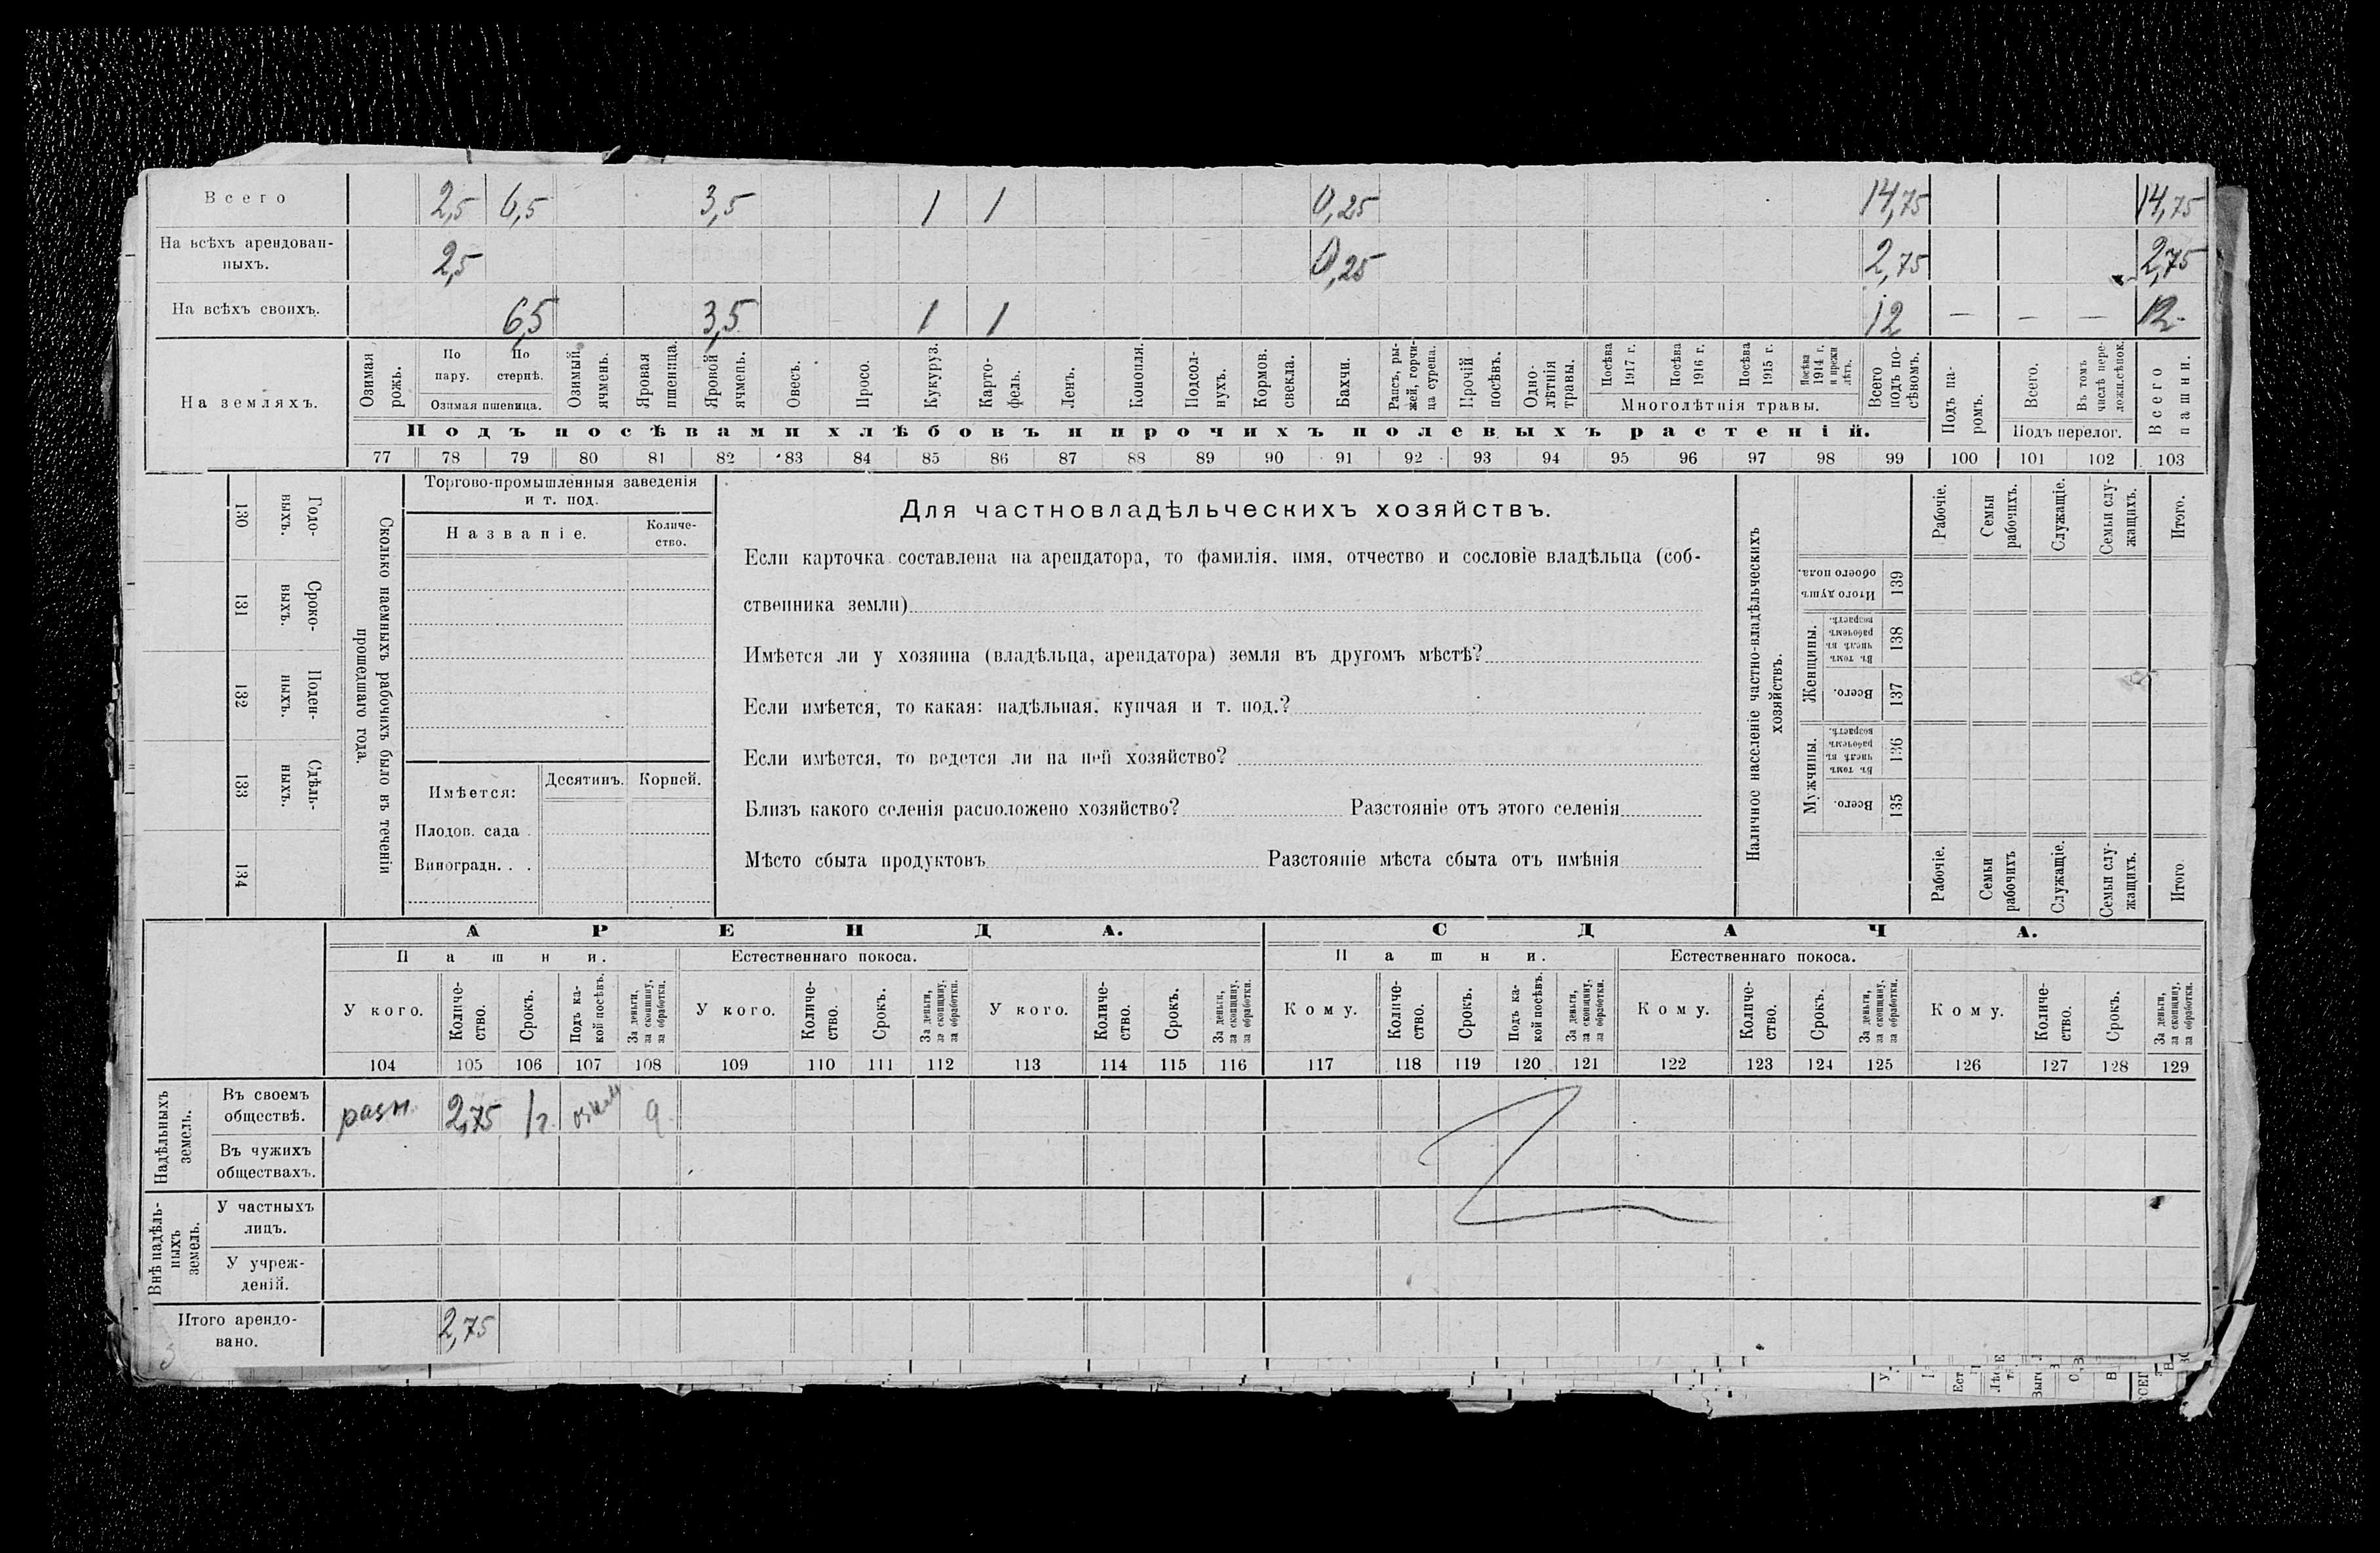 Всего 2,5 6,5 3,5 1 1 0,25 14,75 14,75
На всѣхъ арендован-
ныхъ. 2,5 0,25 2,75 2,75
На всѣхъ своихъ. 6,5 3,5 1 1 12 — — — 12
На земляхъ.
Озимая рожь.
По пару.
По стернѣ.
Озимая пшеница.
Озимый ячмень.
Яровая пшеница.
Яровой ячмень.
Овесъ.
Просо.
Кукуруз.
Карто-
фель.
Ленъ.
Конопля.
Подсол-
нухъ.
Кормов. свекла.
Бахчи.
Рапсъ, ры-
жей, горчи-
ца сурепа.
Прочій посѣвъ.
Одно-
лѣтнія травы.
Посѣва 1917 г.
Посѣва 1916 г.
Посѣва 1915 г.
Посѣва 1914 г. и прежн лѣтъ.
Многолѣтнія травы.
Всего подъ по-
сѣвомъ.
Подъ па-
ромъ.
Всего.
Въ томъ числѣ пере-
ложн.сѣнок.
Подъ перелог.
Всего пашни.
Подъ посѣвами хлѣбовъ и прочихъ полевыхъ растеній.
77 78 79 80 81 82 83 84 85 86 87 88 89 90 91 92 93 94 95 96 97 98 99 100 101 102 103
130 Годо-
выхъ.
131 Сроко-
выхъ.
132 Поден-
ныхъ.
133 Сдѣль-
ныхъ.
134
Сколько наемныхъ рабочихъ было въ теченіи
прошедшаго года.
Торгово-промышленныя заведенія
и т. под.
Названіе.
Количе-
ство.
Имѣется:
Десятинъ. Корней.
Плодов. сада .
Виноградн. . .
Для частновладѣльческихъ хозяйствъ.
Если карточка составлена на арендатора, то фамилія. имя, отчество и сословіе владѣльца (соб-
ственника земли)
Имѣется ли у хозяина (владѣльца, арендатора) земля въ другомъ мѣстѣ?
Если имѣется, то какая: надѣльная, купчая и т. под.?
Если имѣется, то ведется ли на ней хозяйство?
Близъ какого селенія расположено хозяйство? Разстояніе отъ этого селенія
Мѣсто сбыта продуктовъ Разстояніе мѣста сбыта отъ имѣнія
Наличное населеніе частно-владѣльческихъ
хозяйствъ.
Рабочіе.
Семьи рабочихъ.
Служащіе.
Семьи слу-
жащихъ.
Итого.
Итого душъ обоего пола. 139
Женщины.
Въ томъ числѣ въ рабочемъ возрастѣ. 138
Всего. 137
Мужчины.
Въ томъ числѣ въ рабочемъ возрастѣ. 136
Всего. 135
Рабочіе.
Семьи рабочихъ
Служащіе.
Семьи слу-
жащихъ.
Итого
АРЕНДА. СДАЧА.
Пашни. Естественнаго покоса. Пашни. Естественнаго покоса.
У кого.
Количе-
ство.
Срокъ.
Подъ ка-
кой посѣвъ.
За деньги, за скопщину, за обработки.
У кого.
Количе-
ство.
Срокъ.
За деньги, за скопщину, за обработки.
У кого.
Количе-
ство.
Срокъ.
За деньги, за скопщину, за обработки.
Кому.
Количе-
ство.
Срокъ.
Подъ ка-
кой посѣвъ.
За деньги, за скопщину, за обработки.
Кому.
Количе-
ство.
Срокъ.
За деньги, за скопщину, за обработки.
Кому.
Количе-
ство.
Срокъ.
За деньги, за скопщину, за обработки.
104 105 106 107 108 109 110 111 112 113 114 115 116 117 118 119 120 121 122 123 124 125 126 127 128 129
Надѣльныхъ
земель.
Въ своемъ
обществѣ. разн. 2,75 1 г.
Въ чужихъ
обществахъ.
Внѣ надѣль-
ныхъ
земель.
У частныхъ
лицъ.
У учреж-
деній.
Итого арендо-
вано. 2,75